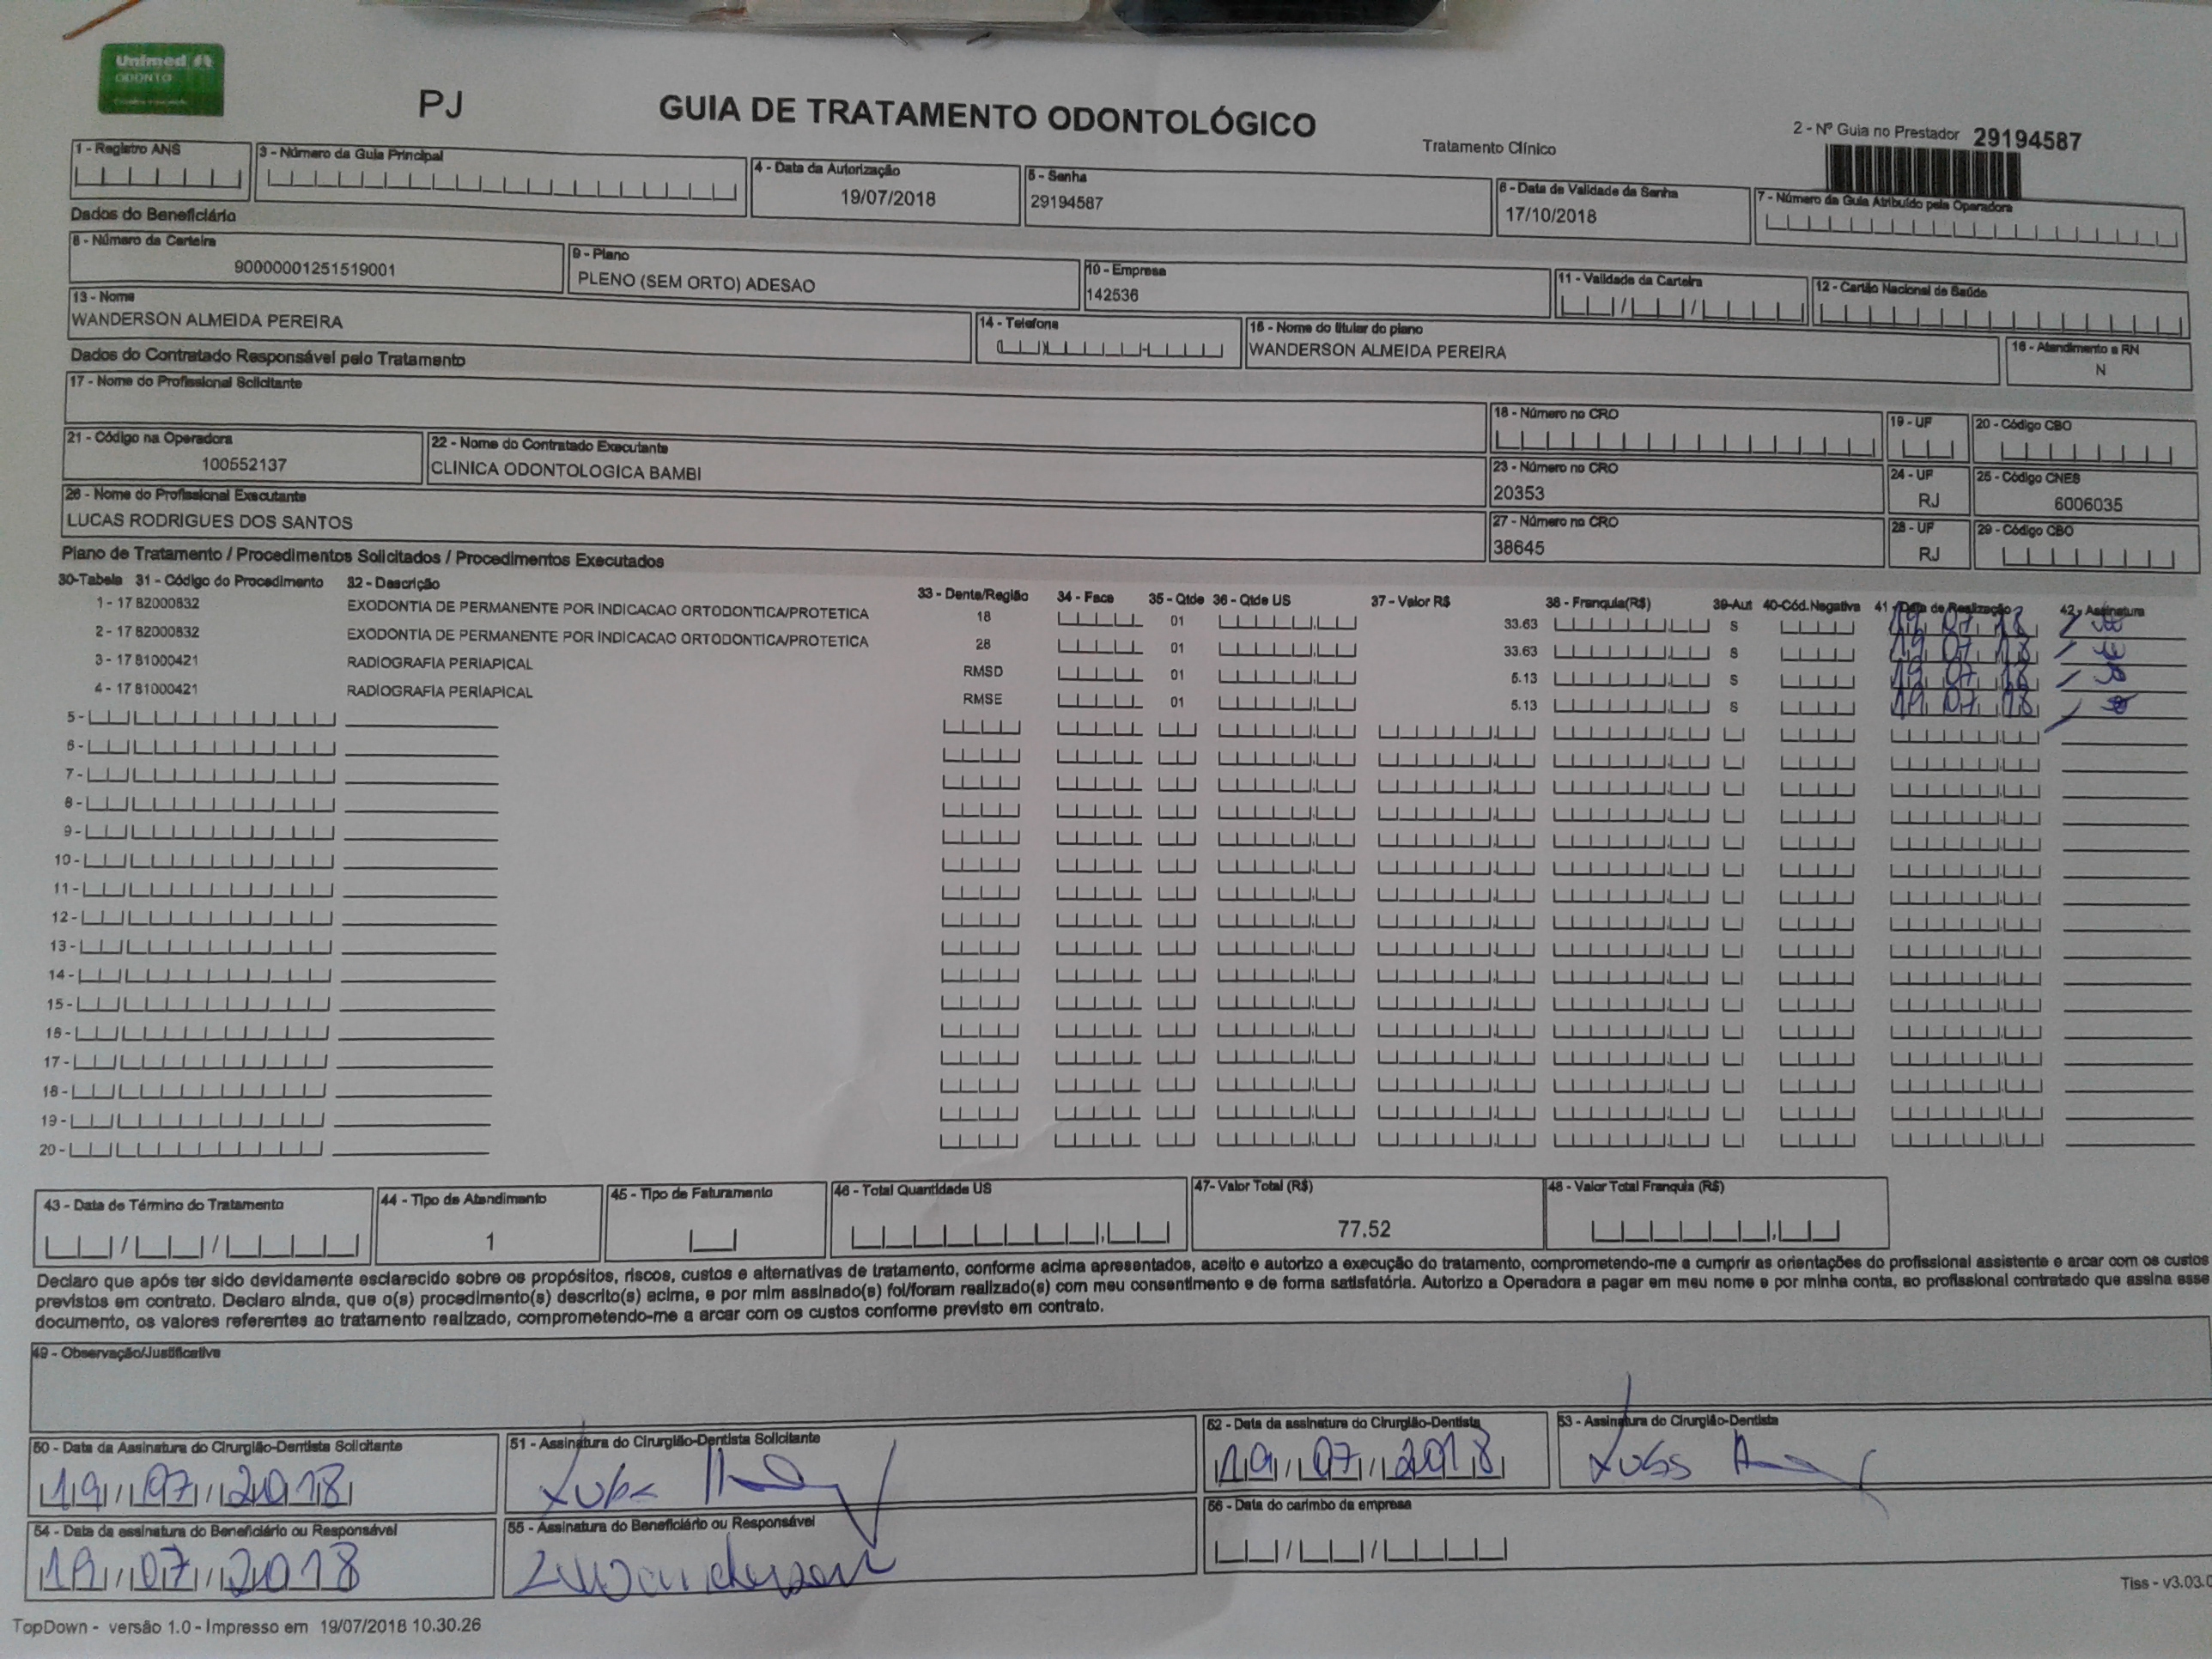 Unimed
ODONTO
PJ
GUIA DE TRATAMENTO ODONTOLÓGICO
Tratamento Clínico
2 - Nº Guia no Prestador 29194587
1 - Registro ANS
3 - Número da Guia Principal
4 - Data da Autorização
19/07/2018
5 - Senha
29194587
6 - Data de Validade da Senha
17/10/2018
7 - Número da Guia Atribuído pela Operadora
Dados do Beneficiário
8 - Número da Carteira
90000001251519001
9 - Plano
PLENO (SEM ORTO) ADESAO
10 - Empresa
142536
11 - Validade da Carteira
12 - Cartão Nacional de Saúde
13 - Nome
WANDERSON ALMEIDA PEREIRA
14 - Telefone
15 - Nome do titular do plano
WANDERSON ALMEIDA PEREIRA
16 - Atendimento a RN
N
Dados do Contratado Responsável pelo Tratamento
17 - Nome do Profissional Solicitante
18 - Número no CRO
19 - UF
20 - Código CBO
21 - Código na Operadora
100552137
22 - Nome do Contratado Executante
CLINICA ODONTOLOGICA BAMBI
23 - Número no CRO
20353
24 - UF
RJ
25 - Código CNES
6006035
26 - Nome do Profissional Executante
LUCAS RODRIGUES DOS SANTOS
27 - Número no CRO
38645
28 - UF
RJ
29 - Código CBO
Plano de Tratamento / Procedimentos Solicitados / Procedimentos Executados
30-Tabela 31 - Código do Procedimento 32 - Descrição 33 - Dente/Região 34 - Face 35 - Qtde 36 - Qtde US 37 - Valor R$ 38 - Franquia(R$) 39-Aut 40-Cód.Negativa 41 - Data de Realização 42 - Assinatura
1 - 17 82000832 EXODONTIA DE PERMANENTE POR INDICACAO ORTODONTICA/PROTETICA 18 01 33.63 S 19 07 18
2 - 17 82000832 EXODONTIA DE PERMANENTE POR INDICACAO ORTODONTICA/PROTETICA 28 01 33.63 S 19 07 18
3 - 17 81000421 RADIOGRAFIA PERIAPICAL RMSD 01 5.13 S 19 07 18
4 - 17 81000421 RADIOGRAFIA PERIAPICAL RMSE 01 5.13 S 19 07 18
5 -
6 -
7 -
8 -
9 -
10 -
11 -
12 -
13 -
14 -
15 -
16 -
17 -
18 -
19 -
20 -
43 - Data de Término do Tratamento
44 - Tipo de Atendimento
1
45 - Tipo de Faturamento
46 - Total Quantidade US
47- Valor Total (R$)
77.52
48 - Valor Total Franquia (R$)
Declaro que após ter sido devidamente esclarecido sobre os propósitos, riscos, custos e alternativas de tratamento, conforme acima apresentados, aceito e autorizo a execução do tratamento, comprometendo-me a cumprir as orientações do profissional assistente e arcar com os custos
previstos em contrato. Declaro ainda, que o(s) procedimento(s) descrito(s) acima, e por mim assinado(s) foi/foram realizado(s) com meu consentimento e de forma satisfatória. Autorizo a Operadora a pagar em meu nome e por minha conta, ao profissional contratado que assina esse
documento, os valores referentes ao tratamento realizado, comprometendo-me a arcar com os custos conforme previsto em contrato.
49 - Observação/Justificativa
50 - Data da Assinatura do Cirurgião-Dentista Solicitante
19/07/2018
51 - Assinatura do Cirurgião-Dentista Solicitante
52 - Data da assinatura do Cirurgião-Dentista
19/07/2018
53 - Assinatura do Cirurgião-Dentista
54 - Data da assinatura do Beneficiário ou Responsável
19/07/2018
55 - Assinatura do Beneficiário ou Responsável
56 - Data do carimbo da empresa
TopDown - versão 1.0 - Impresso em 19/07/2018 10.30.26
Tiss - v3.03.0